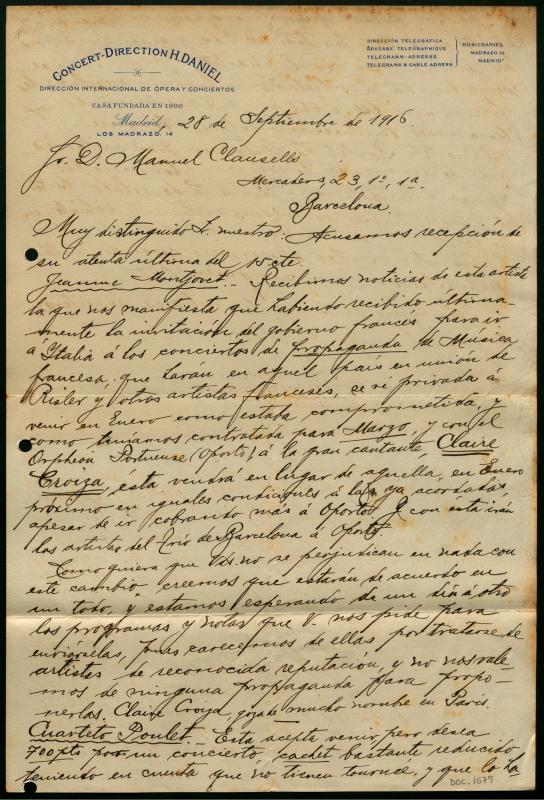 CONCERT-DIRECTION H. DANIEL
DIRECCIÓN INTERNACIONAL DE ÓPERA Y CONCIERTOS
CASA FUNDADA EN 1900
Madrid
LOS MADRAZO, 14
DIRECCIÓN TELEGRÁFICA
ADRESSE TELEGRAPHIQUE
TELEGRAMM-ADRESSE
TELEGRAMS & CABLE ADRESS
"MUSICDANIEL
MADRAZO 14
MADRID"
28 de Septiembre de 1916.
Sr. D. Manuel Clausells
Mercaders, 23, 1º, 1ª.
Barcelona.
Muy distinguido Sr. nuestro: Acusamos recepción de
su atenta última del 15 cte.
Jeanne Montjovet.- Recibimos noticias de esta artista
la que nos manifiesta que habiendo recibido última-
mente la invitación del gobierno francés para ir
á Italia á los conciertos de propaganda de Música
francesa, que harán en aquel país en unión de
Risler y otros artistas franceses, se vé privada á
venir en Enero como estaba comprometida, y
como teníamos contratada para Marzo, y con el
Orpheón Portuense (Oporto) á la gran cantante, Claire
Croiza, esta vendrá en lugar de aquella, en Enero
próximo en iguales condiciones á las ya acordadas
apesar de ir cobrando más á Oporto. Con esta irán
los artistas del Trío de Barcelona á Oporto.
Como quiera que Vds. no se perjudican en nada con
este cambio, creemos que estarán de acuerdo en
un todo, y estamos esperando de un día á otro
los programas y notas que V. nos pide para
enviárselas, pues carecemos de ellas por tratarse de
artistas de reconocida reputación, y no nos vale-
mos de ninguna propaganda para propo-
nerlas. Claire Croiza, goza de mucho nombre en París.
Cuarteto Poulet.- Esta acepta venir, pero desea
700 pts por un concierto, cachet bastante reducido
teniendo en cuenta que no tienen tournée, y que lo ha
DOC. 1679